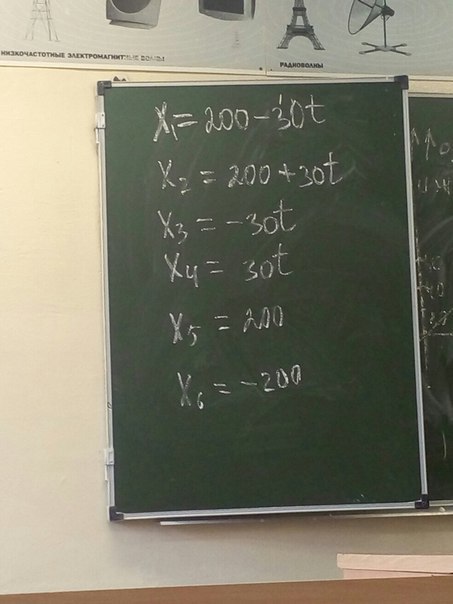 НИЗКОЧАСТОТНЫЕ ЭЛЕКТРОМАГНИТНЫЕ ВОЛНЫ
РАДИОВОЛНЫ
X₁ = 200 - 30t
X₂ = 200 + 30t
X₃ = -30t
X₄ = 30t
X₅ = 200
X₆ = -200